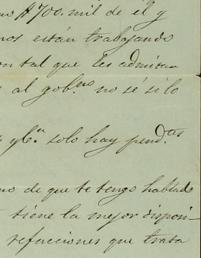 $700. mil de él y
nos están trabajando
con tal que les admitan
al gob.no no sé si lo
y C.a solo hay pend.tes
no de que te tengo hablado
tiene la mejor disposi-
refacciones que trata